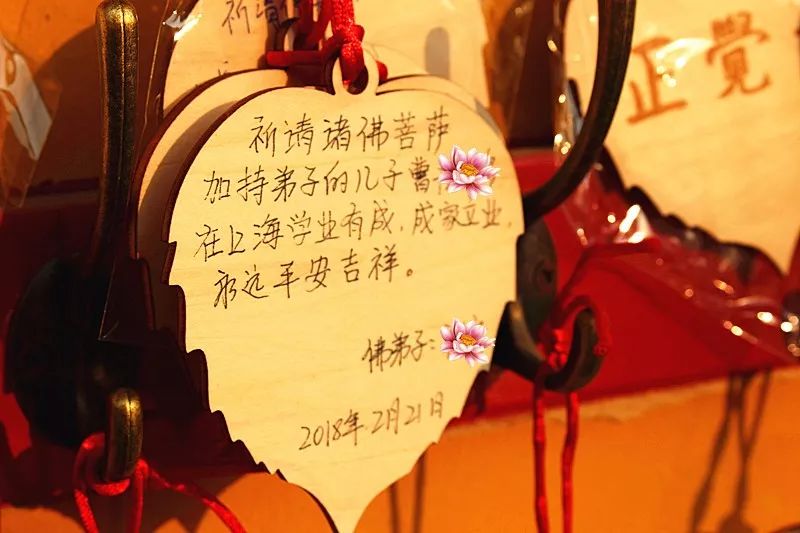 祈请
正覺
祈请诸佛菩萨
加持弟子的儿子曹
在上海学业有成,成家立业,
永远平安吉祥。
佛弟子:
2018年2月21日